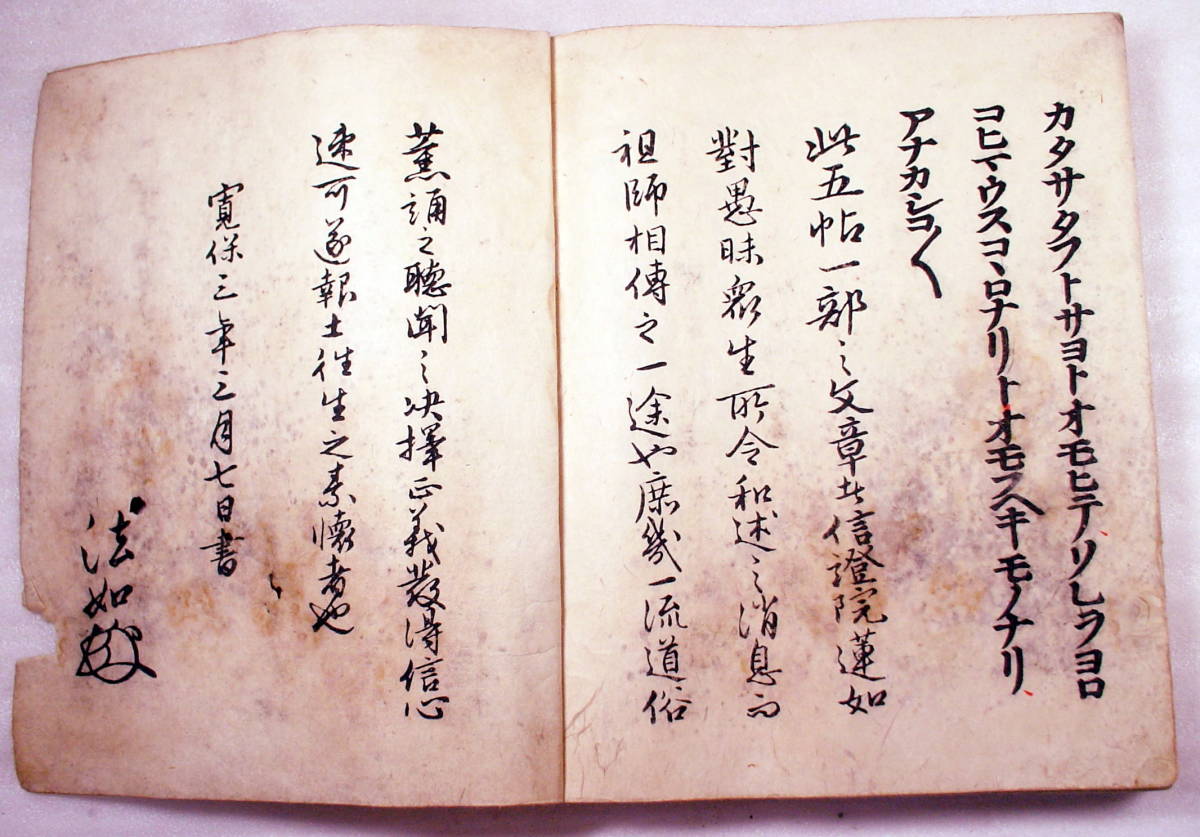 カタサタフトサヨトオモヒテソレラヨロ
コヒマウスコヽロナリトオモフヘキモノナリ
アナカシコ〱
此五帖一部之文章者信證院蓮如
對愚昧衆生所令和述之消息而
祖師相傳之一途也庶幾一流道俗
薫誦之聴聞之决擇正義發得信心
速可遂報土往生之素懷者也
寛保三年三月七日書
法如